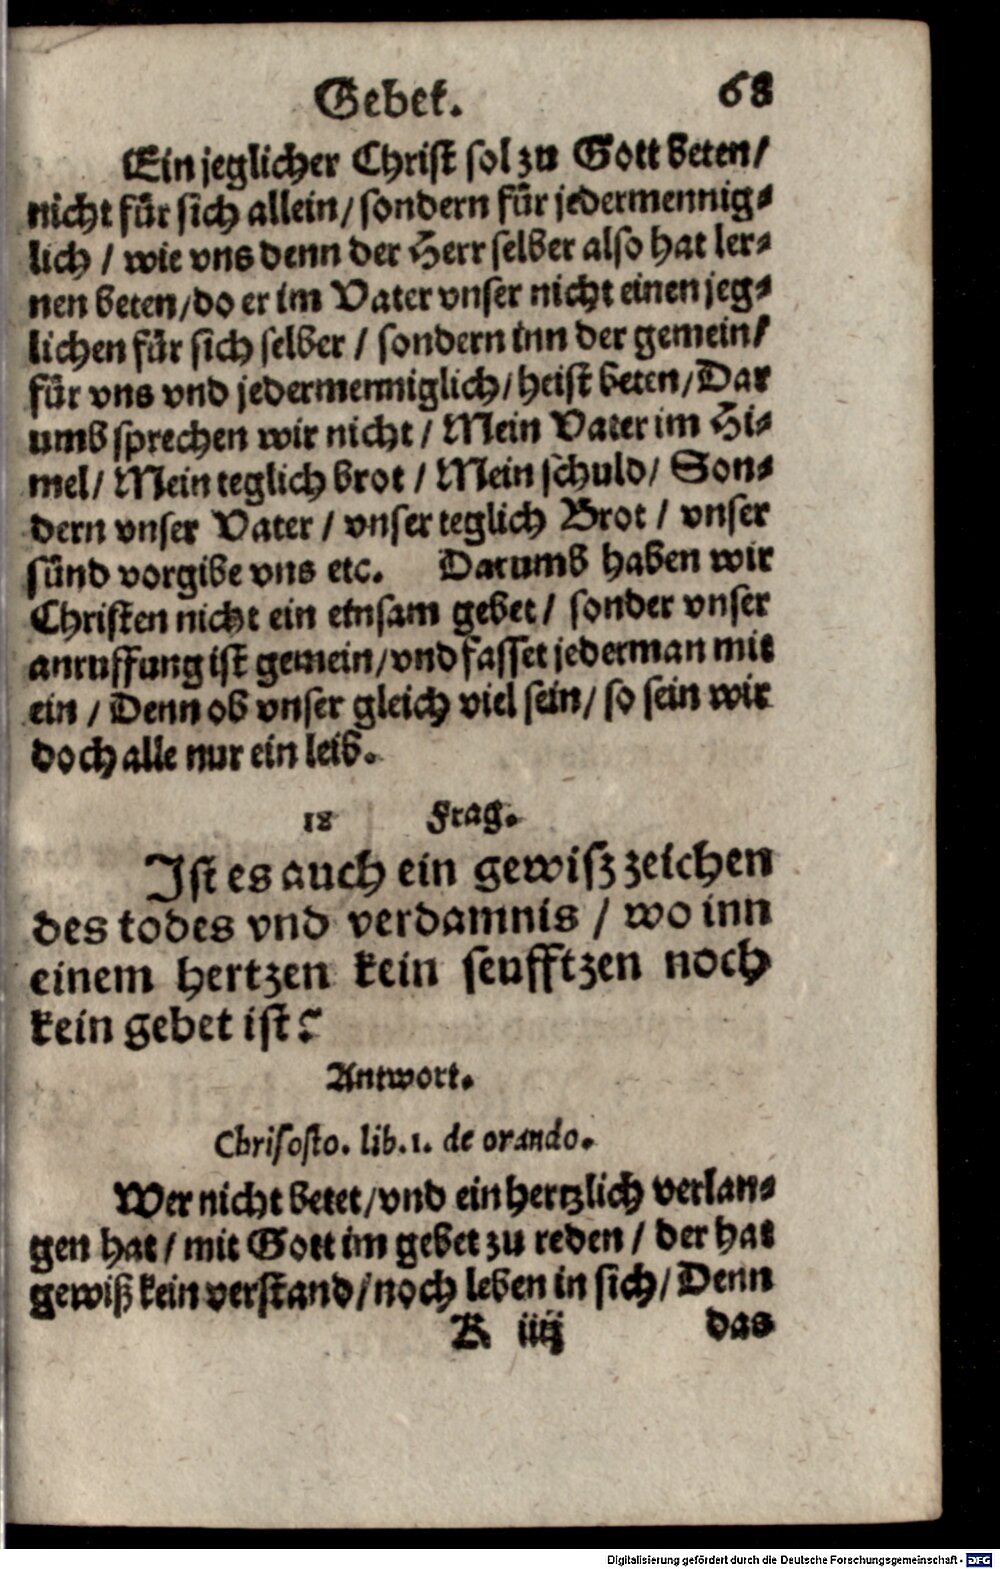 Gebet. 68
Ein jeglicher Christ sol zu Gott beten/
nicht für sich allein/ sondern für jedermennig-
lich / wie vns denn der Herr selber also hat ler-
nen beten/ do er im Vater vnser nicht einen jeg-
lichen für sich selber / sondern inn der gemein/
für vns vnd jedermenniglich/ heist beten/ Dar
umb sprechen wir nicht / Mein Vater im Hi-
mel/ Mein teglich brot / Mein schuld/ Son-
dern vnser Vater / vnser teglich Brot / vnser
sünd vorgibe vns etc. Darumb haben wir
Christen nicht ein einsam gebet / sonder vnser
anruffung ist gemein/ vnd fasset jederman mit
ein / Denn ob vnser gleich viel sein/ so sein wir
doch alle nur ein leib.
18 Frag.
Ist es auch ein gewisz zeichen
des todes vnd verdamnis / wo inn
einem hertzen kein seufftzen noch
kein gebet ist?
Antwort.
Chrisosto. lib. 1. de orando.
Wer nicht betet/ vnd ein hertzlich verlan-
gen hat / mit Gott im gebet zu reden / der hat
gewiß kein verstand/ noch leben in sich/ Denn
K iiij das
Digitalisierung gefördert durch die Deutsche Forschungsgemeinschaft - DFG